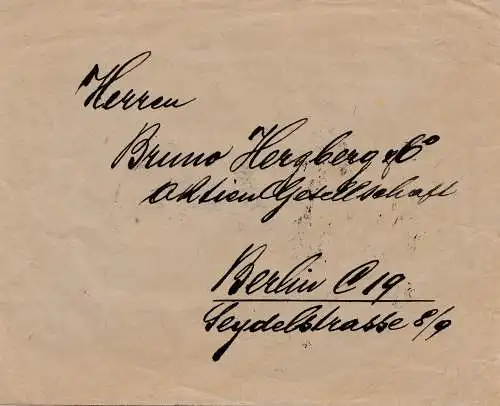 Herren
Bruno Herzberg & Co
Aktien Gesellschaft
Berlin C 19
Seydelstrasse 8/9